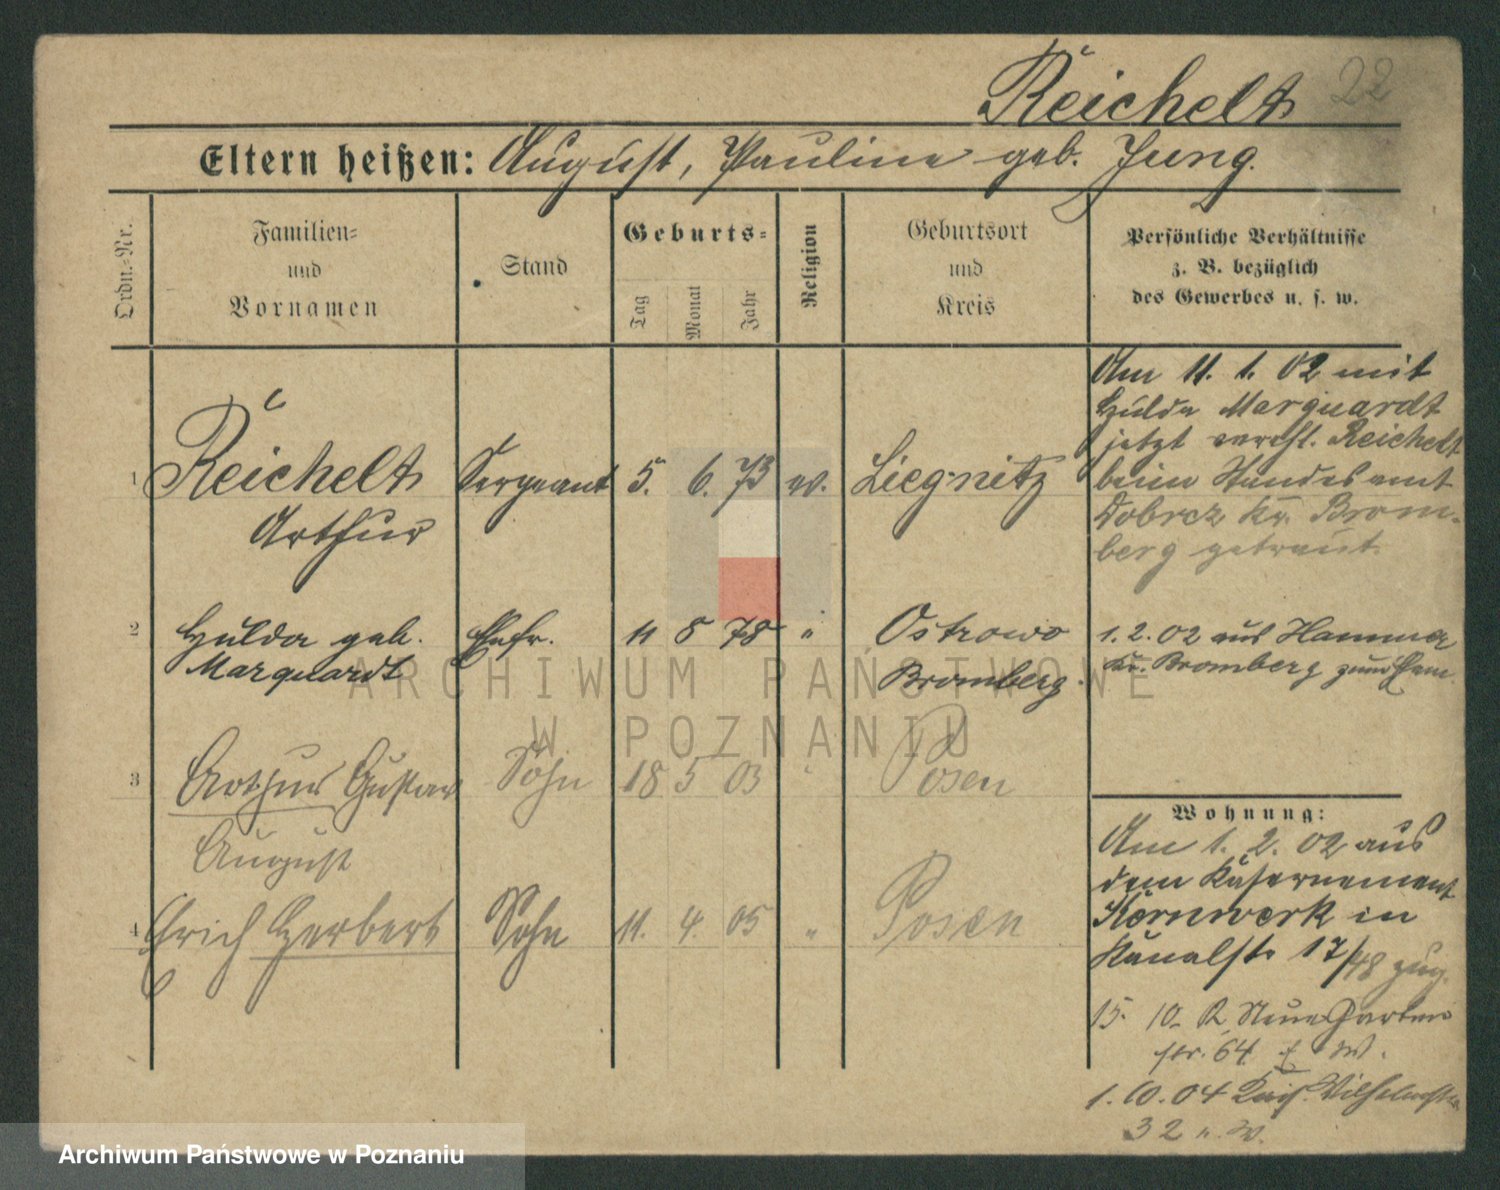 22
Reichelt
Eltern heißen: August, Pauline geb. Jung.
Ordn.-Nr.
Familien-
und
Vornamen
Stand
Geburts-
Tag
Monat
Jahr
Religion
Geburtsort
und
Kreis
Persönliche Verhältnisse
z. B. bezüglich
des Gewerbes u. s. w.
1 Reichelt Sergeant 5. 6. 73 ev. Liegnitz
Arthur
Am 11. 1. 02 mit
Hulda Marquardt
jetzt verehl. Reichelt
beim Standesamt
Dobrcz Kr. Brom-
berg getraut.
2 Hulda geb. Ehefr. 11 8 78 " Ostrowo
Marquardt Bromberg.
1. 2. 02 aus Hamma
Kr. Bromberg zum
3 Arthur Gustav Sohn 18 5 03 " Posen
August
4 Erich Herbert Sohn 11. 4. 05 " Posen
Wohnung:
Am 1. 2. 02 aus
dem Kasernement
Kernwerk in
Kanalst. 17/48 zug.
15. 10. R. Neue Garten
str. 64. W.
1. 10. 04 Kais. Wilhelmstr.
32 n. W.
ARCHIWUM PAŃSTWOWE
W POZNANIU
Archiwum Państwowe w Poznaniu